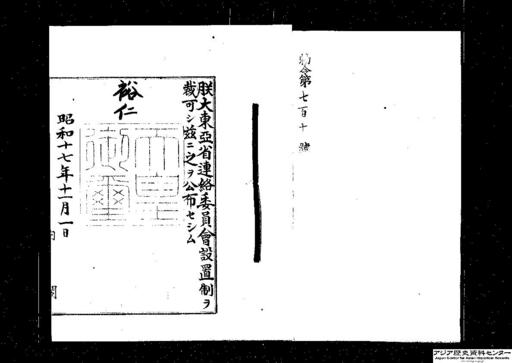 勅令第七百十號
朕大東亞省連絡委員會設置制ヲ
裁可シ茲ニ之ヲ公布セシム
裕仁
天皇御璽
昭和十七年十一月一日
内閣
アジア歴史資料センター
Japan Center for Asian Historical Records